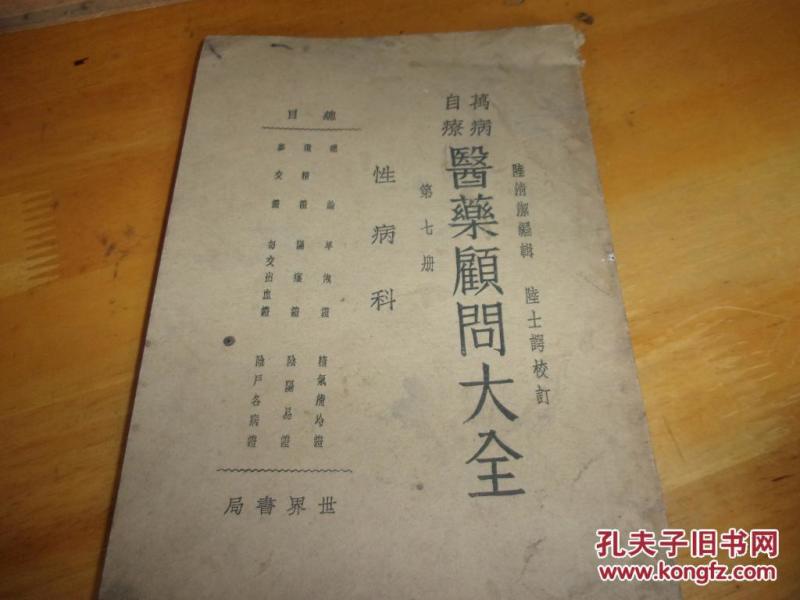 陸清潔編輯 陸士諤校訂
萬病
自療
醫藥顧問大全
第七册
性病科
總目
總論 早洩證 精氣清冷證
遺精證 陽痿證 陰陽易證
夢交證 每交出血證 陰戶各病證
世界書局
孔夫子旧书网
www.kongfz.com